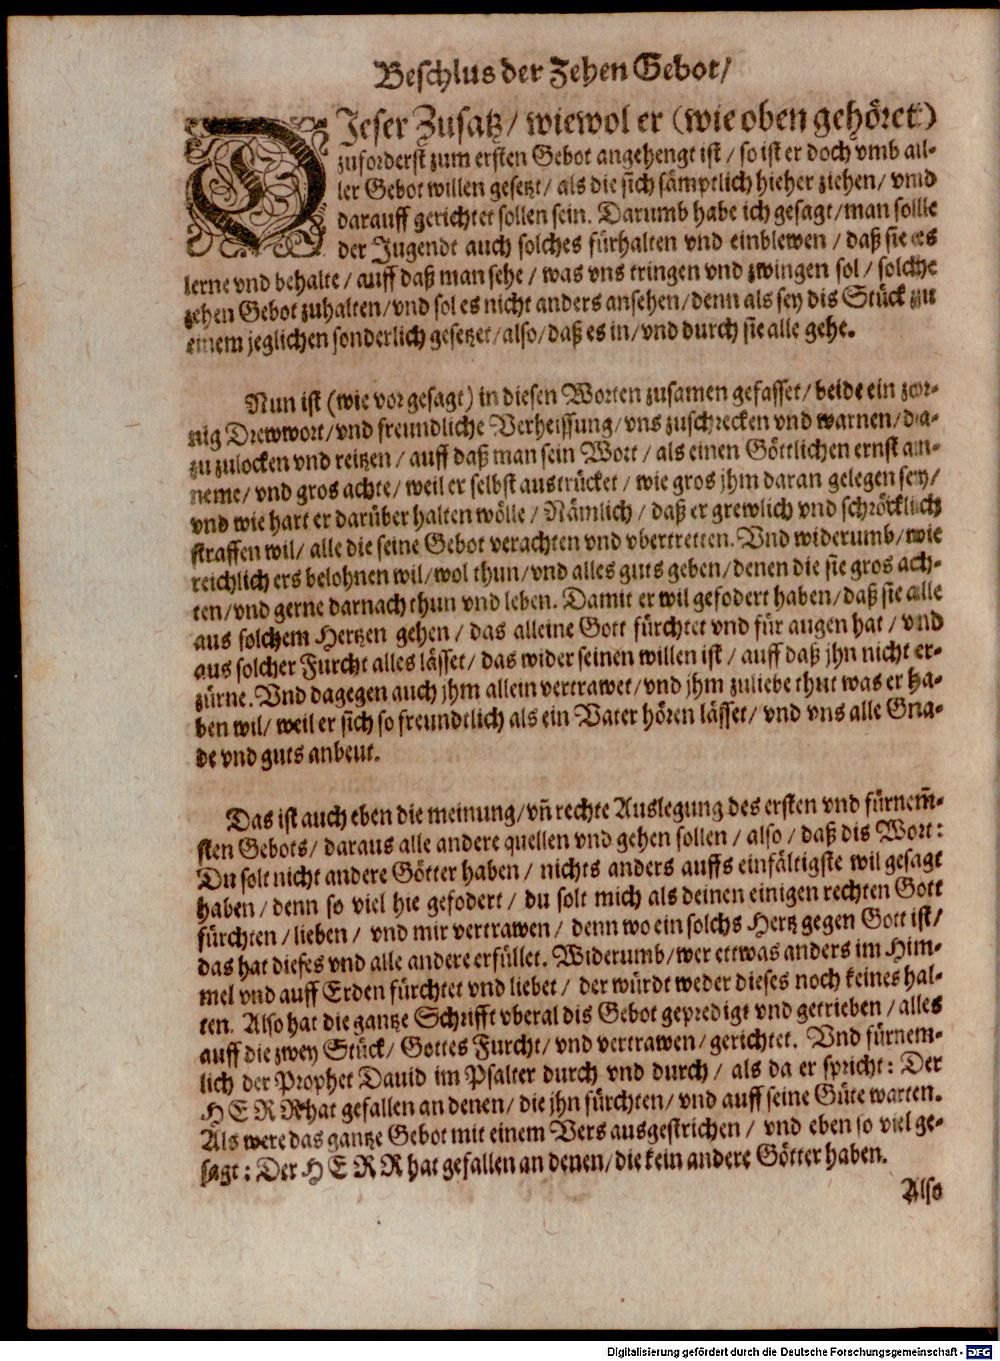 Beschlus der Zehen Gebot/
DIeser Zusatz/ wiewol er (wie oben gehöret)
zuforderst zum ersten Gebot angehengt ist/ so ist er doch vmb al-
ler Gebot willen gesetzt/ als die sich sämptlich hieher ziehen/ vnd
darauff gerichtet sollen sein. Darumb habe ich gesagt/ man sollle
der Jugendt auch solches fürhalten vnd einblewen/ daß sie es
lerne vnd behalte/ auff daß man sehe/ was vns tringen vnd zwingen sol/ solche
zehen Gebot zuhalten/ vnd sol es nicht anders ansehen/ denn als sey dis Stück zu
einem jeglichen sonderlich gesetzet/ also/ daß es in/ vnd durch sie alle gehe.
Nun ist (wie vor gesagt) in diesen Worten zusamen gefasset/ beide ein zor-
nig Drewwort/ vnd freundliche Verheissung/ vns zuschrecken vnd warnen/ da-
zu zulocken vnd reitzen/ auff daß man sein Wort/ als einen Göttlichen ernst an-
neme/ vnd gros achte/ weil er selbst austrücket/ wie gros jhm daran gelegen sey/
vnd wie hart er darüber halten wölle/ Nämlich/ daß er grewlich vnd schröcklich
straffen wil/ alle die seine Gebot verachten vnd vbertretten. Vnd widerumb/ wie
reichlich ers belohnen wil/ wol thun/ vnd alles guts geben/ denen die sie gros ach-
ten/ vnd gerne darnach thun vnd leben. Damit er wil gefodert haben/ daß sie alle
aus solchem Hertzen gehen/ das alleine Gott fürchtet vnd für augen hat/ vnd
aus solcher Furcht alles lässet/ das wider seinen willen ist/ auff daß jhn nicht er-
zürne. Vnd dagegen auch jhm allein vertrawet/ vnd jhm zuliebe thut was er ha-
ben wil/ weil er sich so freundtlich als ein Vater hören lässet/ vnd vns alle Gna-
de vnd guts anbeut.
Das ist auch eben die meinung/ vn̄ rechte Auslegung des ersten vnd fürnem̄-
sten Gebots/ daraus alle andere quellen vnd gehen sollen/ also/ daß dis Wort:
Du solt nicht andere Götter haben/ nichts anders auffs einfältigste wil gesagt
haben/ denn so viel hie gefodert/ du solt mich als deinen einigen rechten Gott
fürchten/ lieben/ vnd mir vertrawen/ denn wo ein solchs Hertz gegen Gott ist/
das hat dieses vnd alle andere erfüllet. Widerumb/ wer ettwas anders im Him-
mel vnd auff Erden fürchtet vnd liebet/ der würdt weder dieses noch keines hal-
ten. Also hat die gantze Schrifft vberal dis Gebot gepredigt vnd getrieben/ alles
auff die zwey Stück/ Gottes Furcht/ vnd vertrawen/ gerichtet. Vnd fürnem-
lich der Prophet Dauid im Psalter durch vnd durch/ als da er spricht: Der
HERR hat gefallen an denen/ die jhn fürchten/ vnd auff seine Güte warten.
Als were das gantze Gebot mit einem Vers ausgestrichen/ vnd eben so viel ge-
sagt: Der HERR hat gefallen an denen/ die kein andere Götter haben.
Also
Digitalisierung gefördert durch die Deutsche Forschungsgemeinschaft - DFG